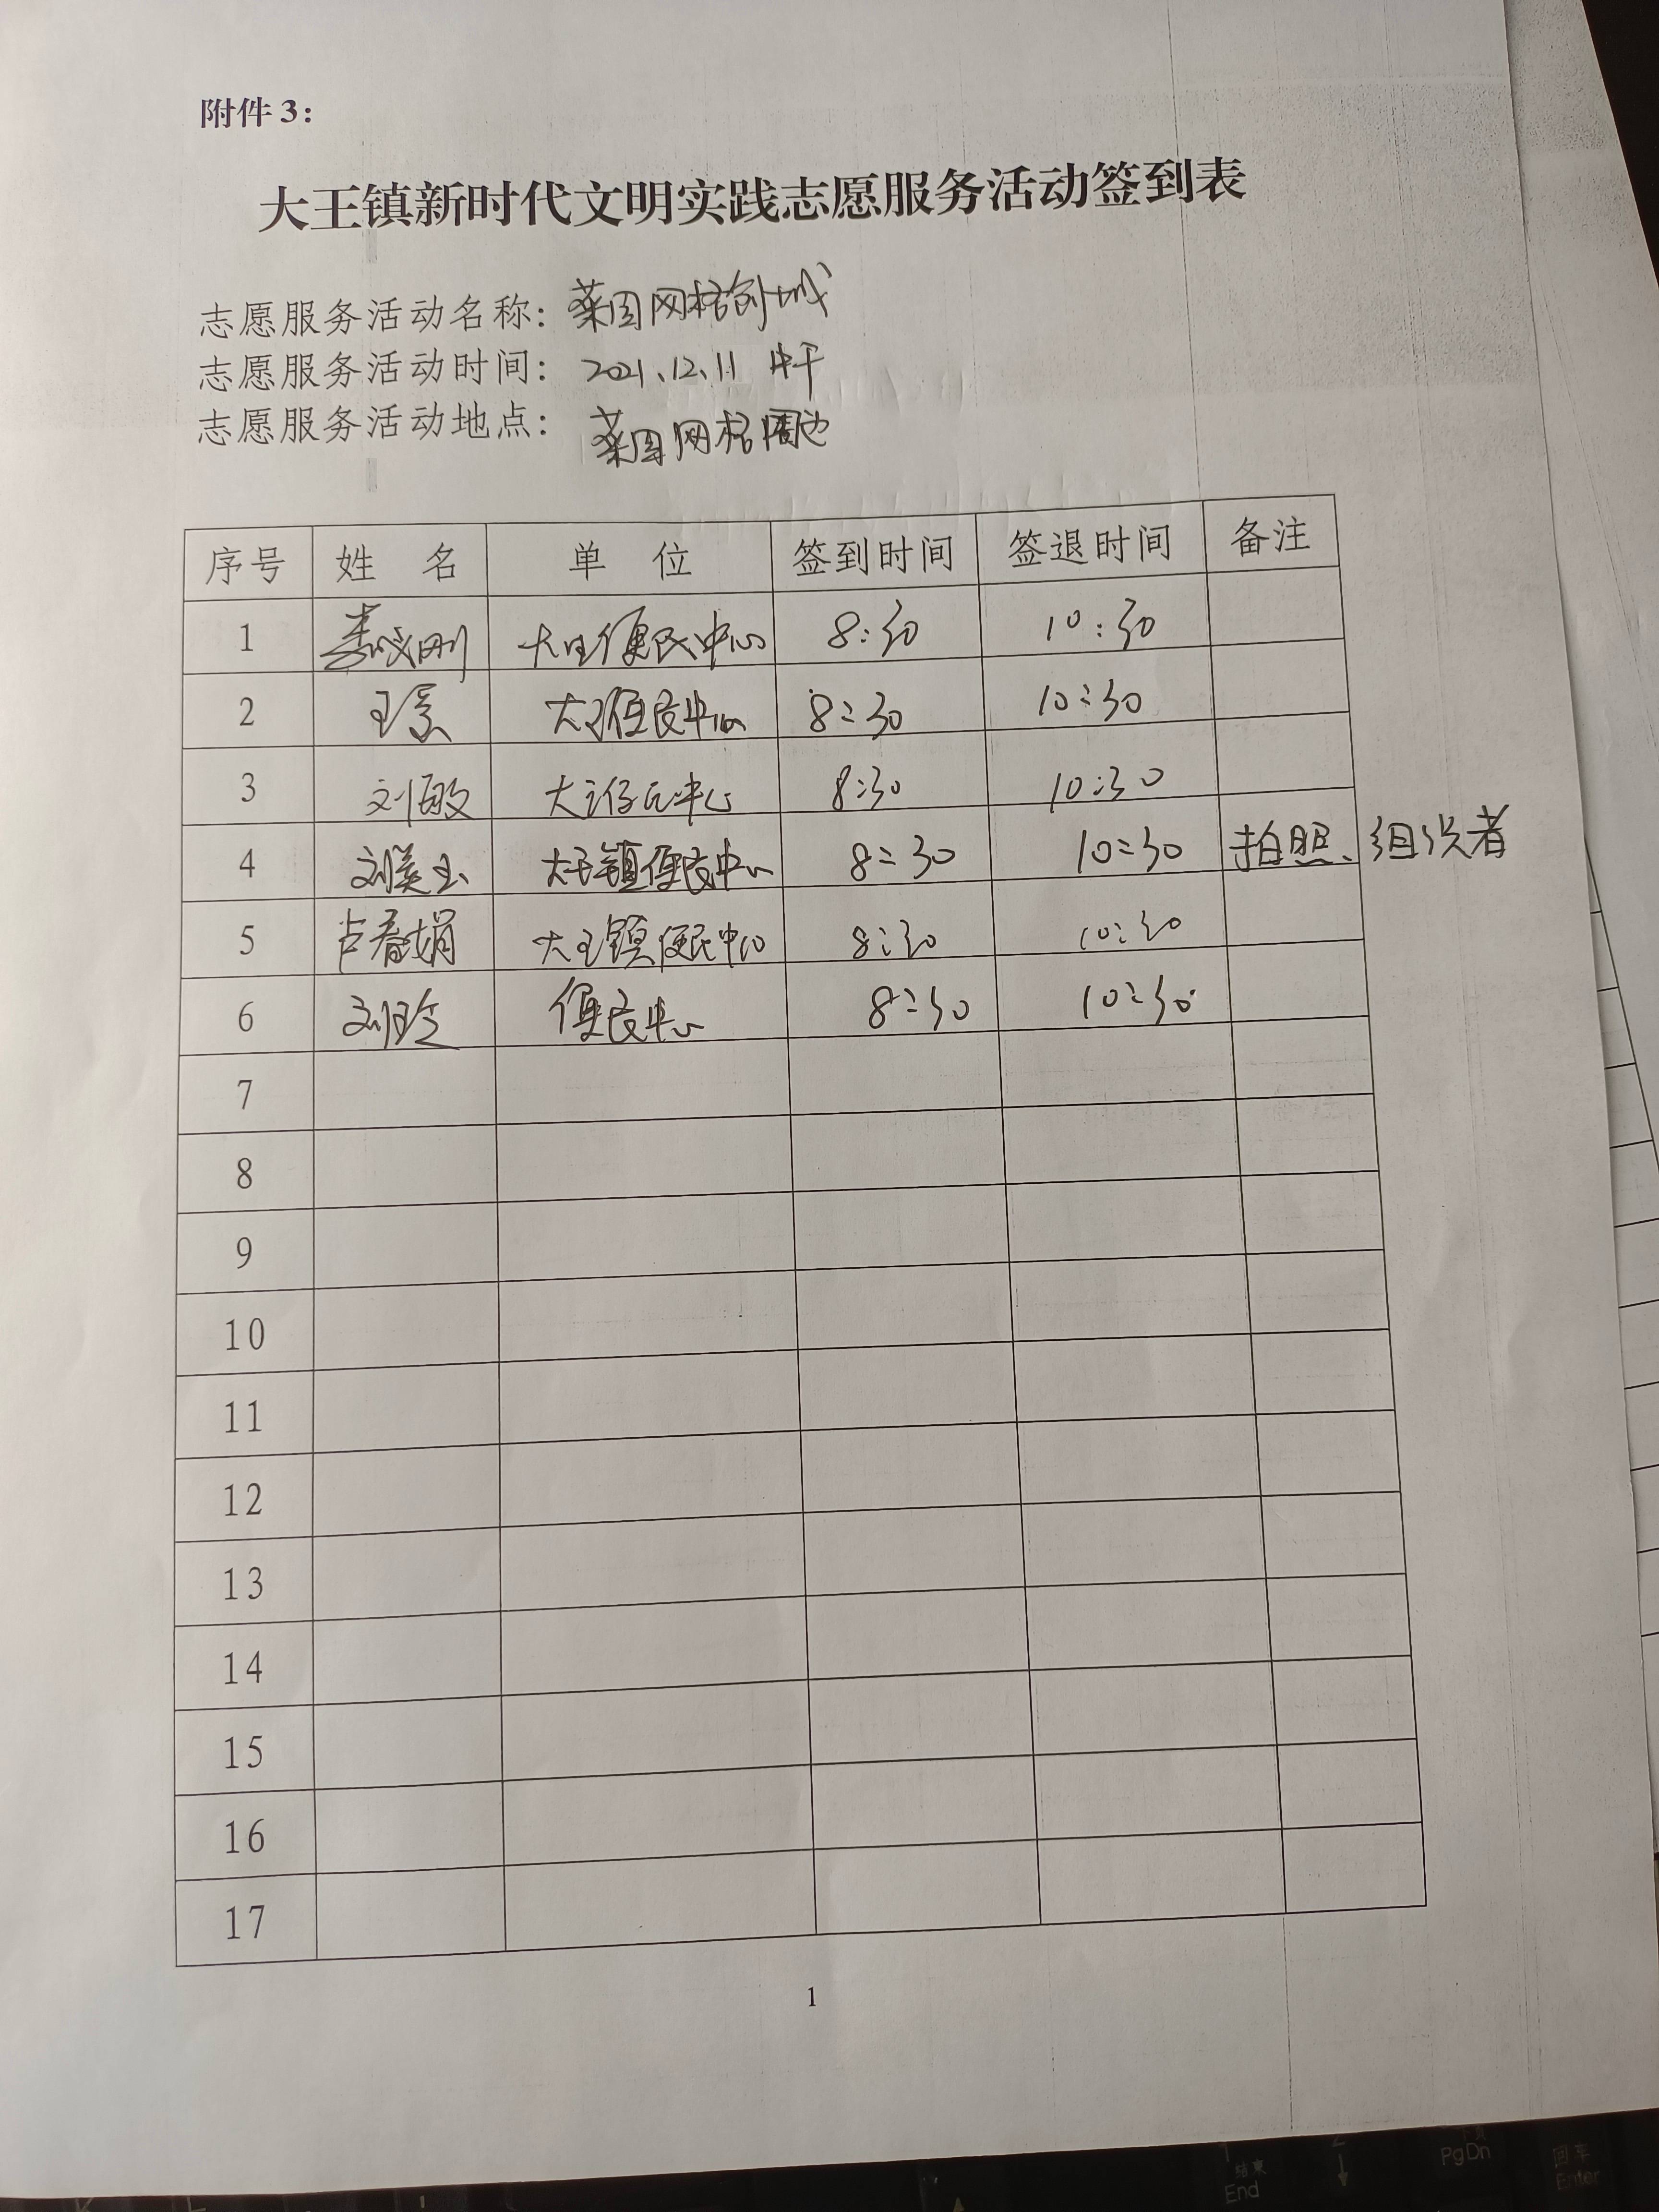 附件3：
大王镇新时代文明实践志愿服务活动签到表
志愿服务活动名称：菜园网格创城
志愿服务活动时间：2021.12.11
志愿服务活动地点：菜园网格周边
序号 姓 名 单 位 签到时间 签退时间 备注
1 大王便民中心 8:30 10:30
2 大王便民中心 8:30 10:30
3 刘敏 大王便民中心 8:30 10:30
4 刘美玉 大王镇便民中心 8:30 10:30 拍照、组织者
5 卢春娟 大王镇便民中心 8:30 10:30
6 刘玲 便民中心 8:30 10:30
7
8
9
10
11
12
13
14
15
16
17
1
结束
End
PgDn
回车
Enter